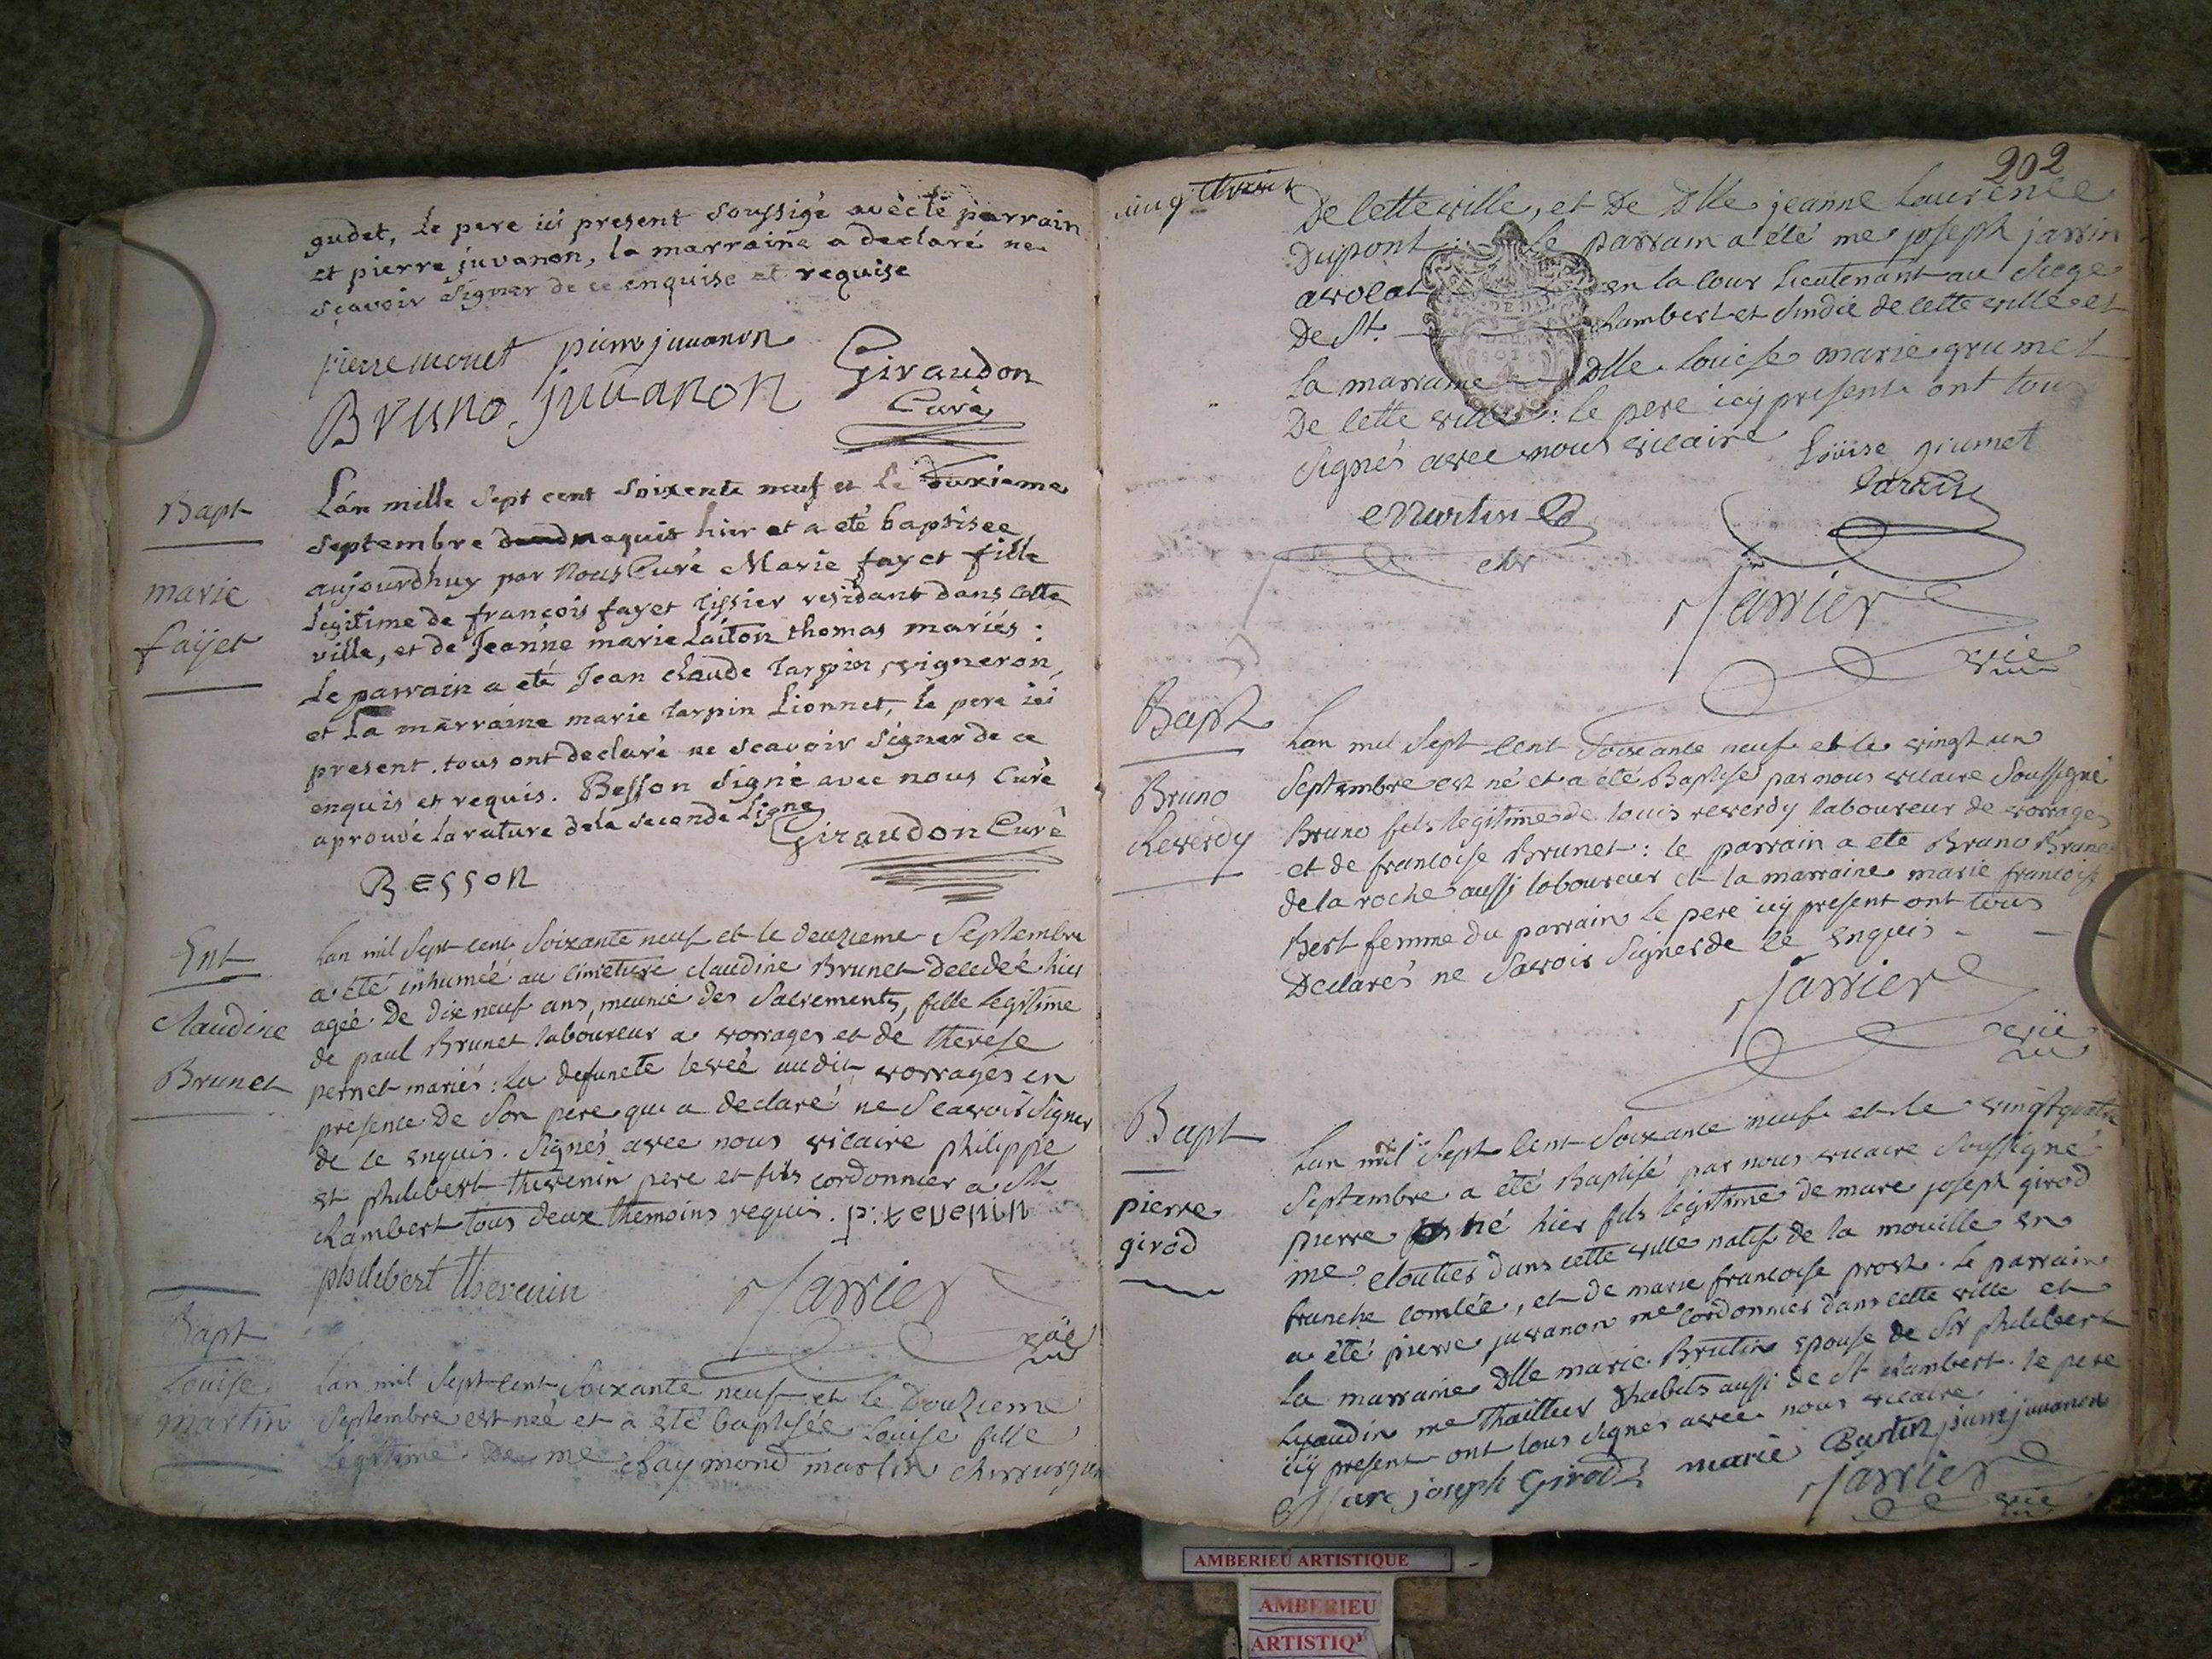 gudet, Le pere ici present soussigé avec le parrain
et pierre juvanon, la marraine a declaré ne
sçavoir signer de ce enquise et requise
pierre monet pierre juvanon
Giraudon
Curé
Bruno juvanon
Bapt
marie
faijet
L'an mille sept cent soixente neuf et le deuxieme
septembre naquit hier et a eté baptisee
aujourdhuy par Nous Curé Marie fayet fille
Legitime de françois fayet tissier residant dans cette
ville, et de Jeanne marie Laiton thomas mariés :
Le parrain a eté Jean claude tarpin, vigneron,
et La marraine marie tarpin Lionnet, le pere ici
present. tous ont declaré ne scavoir signer de ce
enquis et requis. Besson signé avec nous Curé
aprouvé la rature de la seconde Ligne
Giraudon Curé
Besson
Ent
Claudine
Brunet
Lan mil sept cent soixante neuf et le deuzieme Septembre
a été inhumée au cimetiere claudine Brunet decedeé hier
agée De dix neuf ans, meunie des Sacrements, fille Legitime
de paul Brunet laboureur a vorrages et de therese
pernet mariés : La defuncte levée audit vorrages en
presence De Son pere qui a declaré ne Scavoir signer
de ce enquis. Signés avec nous vicaire philippe
et philibert thevenin pere et fils cordonnier a St
Rambert tous deux themoins requis. p: tevenin
philibert thevenin
Jarrier
vic
Bapt
Louise
martin
Lan mil Sept cent Soixante neuf et le Douzieme
Septembre est neé et a été baptisée Louise fille
Legitime De me Raymond martin chirurgien
202
De cette ville, et De Dlle jeanne Laurence
Dupont : Le parrain a été me joseph jarrin
avocat en la cour Lieutenant au Siege
De St. Rambert et Sindic de cette ville et
La marraine Dlle Louise marie grumet
De cette ville : le pere icy present ont tous
Signés avec nous vicaire
Loüise grumet
Jarrin
Martin
chr
Jarrier
vic
Bapt
Bruno
Reverdy
Lan mil Sept cent Soixante neuf et le vingt un
Septembre est né et a été Baptisé par nous vicaire Soussigné
Bruno fils legitime de louis reverdy laboureur de vorrages
et de francoise Brunet : le parrain a eté Bruno Brunet
de la roche aussi laboureur et la marraine marie francoise
Bert femme du parrain Le pere icy present ont tous
Declarés ne Savoir Signer de ce enquis
Jarrier
vic
Bapt
pierre
girod
Lan mil Sept cent Soixante neuf et le vingt quatre
Septembre a été Baptisé par nous vicaire Soussigné
pierre né hier fils legitime de marc joseph girod
me cloutier dans cette ville natif de la mouille en
franche comtée, et de marie francoise prost. Le parrain
a été pierre juvanon me cordonnier dans cette ville et
La marraine Dlle marie Brutin epouse de Sr philibert
me thailleur Dhabits aussi de St Rambert. le pere
icy present ont tous signes avec nous vicaire
Marc joseph Girod marie Burtin pierre juvanon
Jarrier
vic
AMBERIEU ARTISTIQUE
AMBERIEU
ARTISTIQ